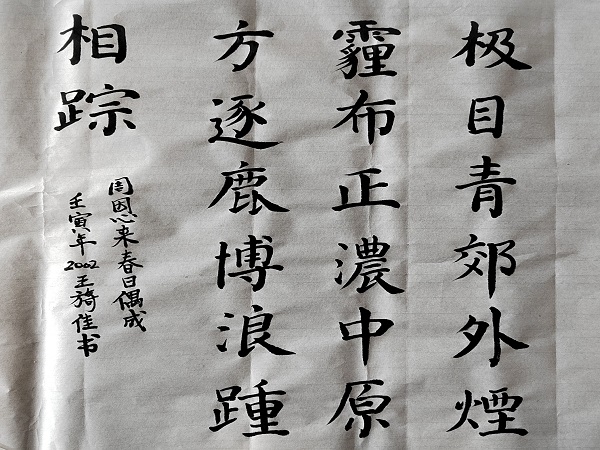 极目青郊外煙
霾布正濃中原
方逐鹿博浪踵
相踪
周恩来春日偶成
壬寅年2002王旖佳书